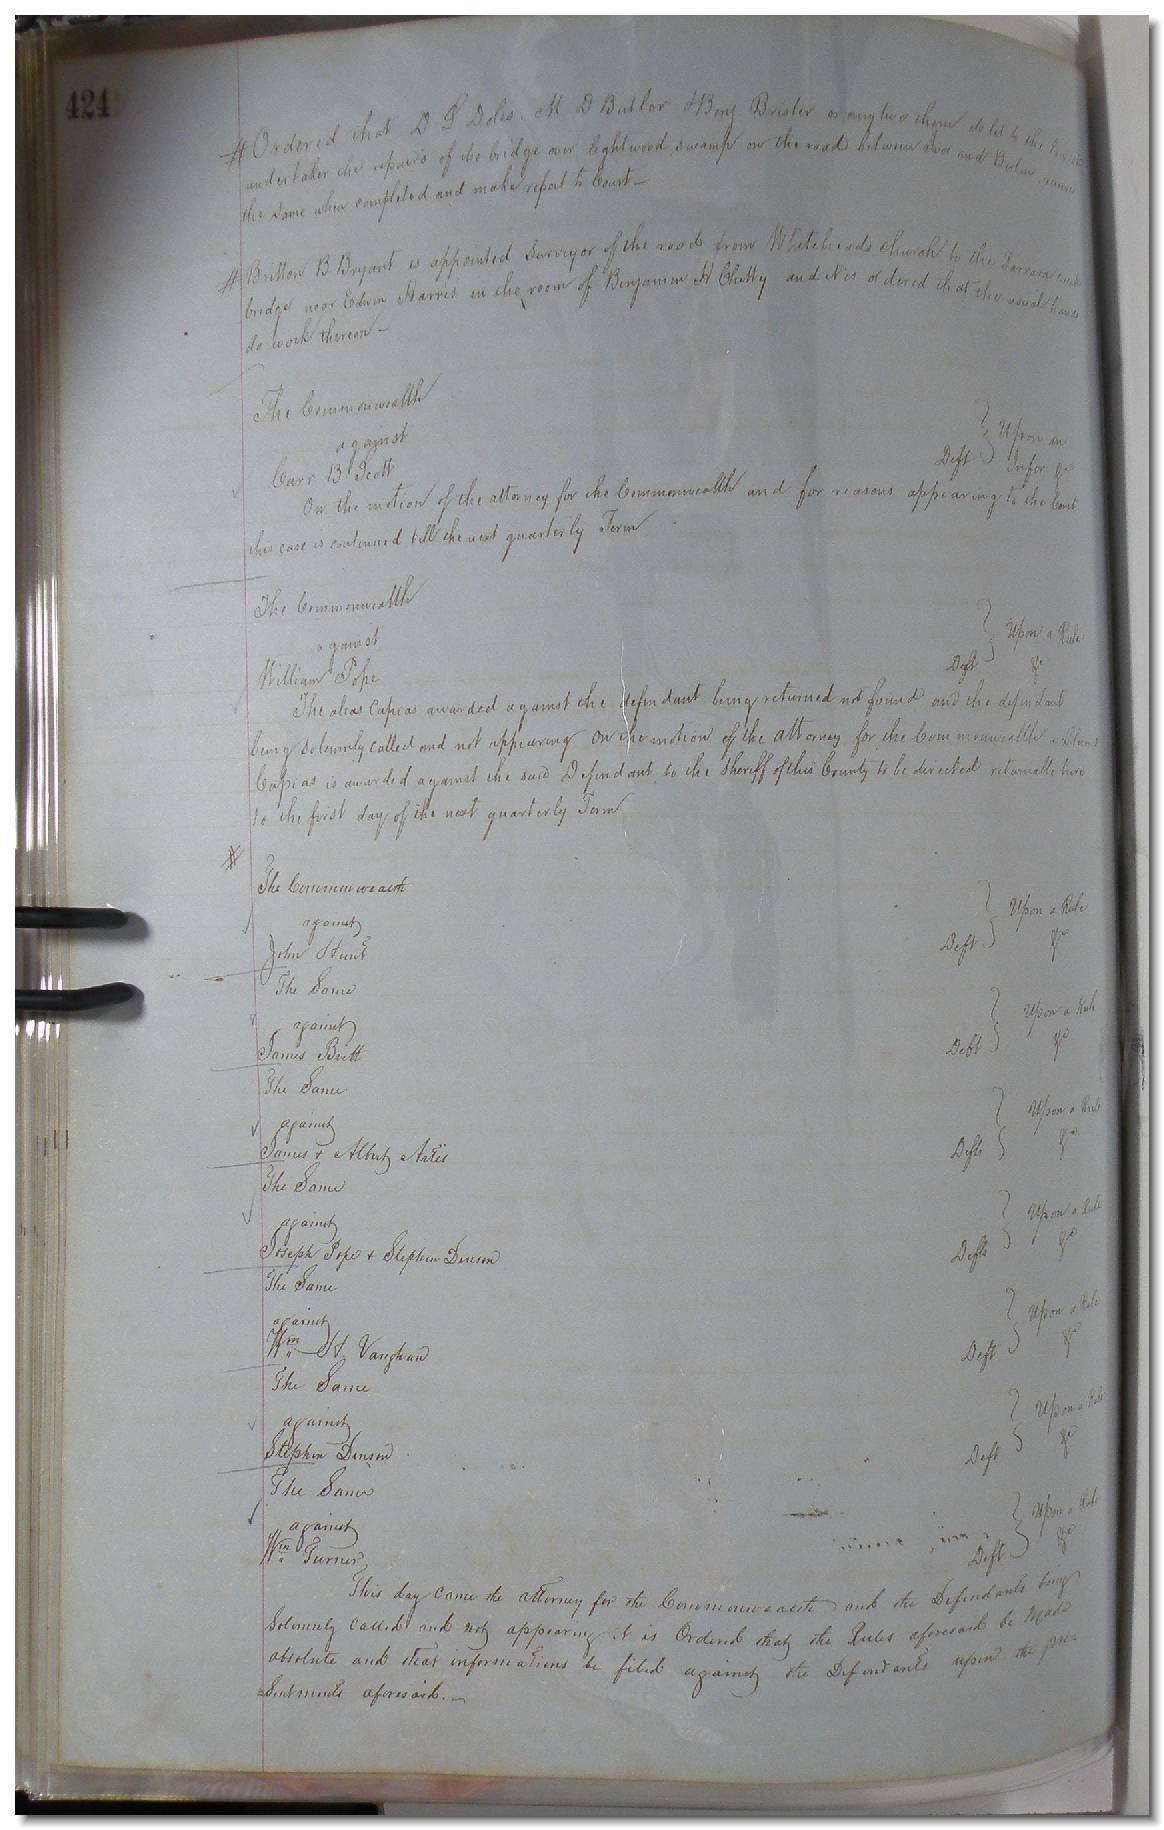 424
# Ordered that D S Doles, M D Butler & Benj Brister or any two them do let to the
undertaker the repairs of the bridge over lightwood swamp on the road between and Berlin
the same when completed and make report to Court—
# Britton B Bryant is appointed Surveyor of the road from Whiteheads church to the
bridge near Edwin Harris in the room of Benjamin H Chitty and it is ordered that the usual hands
do work thereon—
The Commonwealth
against
Carr B Scott Deft } Upon an
Infor &c
On the motion of the attorney for the Commonwealth and for reasons appearing to the Court
this case is continued till the next quarterly Term
The Commonwealth
against
William Pope Deft } Upon a Rule
&c
The alias Capias awarded against the defendant being returned not found and the defendant
being solemnly called and not appearing on the motion of the attorney for the Commonwealth a
Capias is awarded against the said Defendant to the sheriff of this County to be directed returnable here
to the first day of the next quarterly Term
#
The Commonwealth
against
John Hunt Deft } Upon a Rule
&c
The Same
against
James Britt Deft } Upon a Rule
&c
The Same
against
James & Albert Defts } Upon a Rule
&c
The Same
against
Joseph Pope & Stephen Denson Defts } Upon a Rule
&c
The Same
against
Wm H. Vaughan Deft } Upon a Rule
&c
The Same
against
Stephen Denson Deft } Upon a Rule
&c
The Same
against
Wm Turner Deft } Upon a Rule
&c
This day came the attorney for the Commonwealth and the Defendants being
Solemnly called and not appearing it is Ordered that the Rules aforesaid be made
absolute and that informations be filed against the Defendants upon the pre-
=sentments aforesaid.—